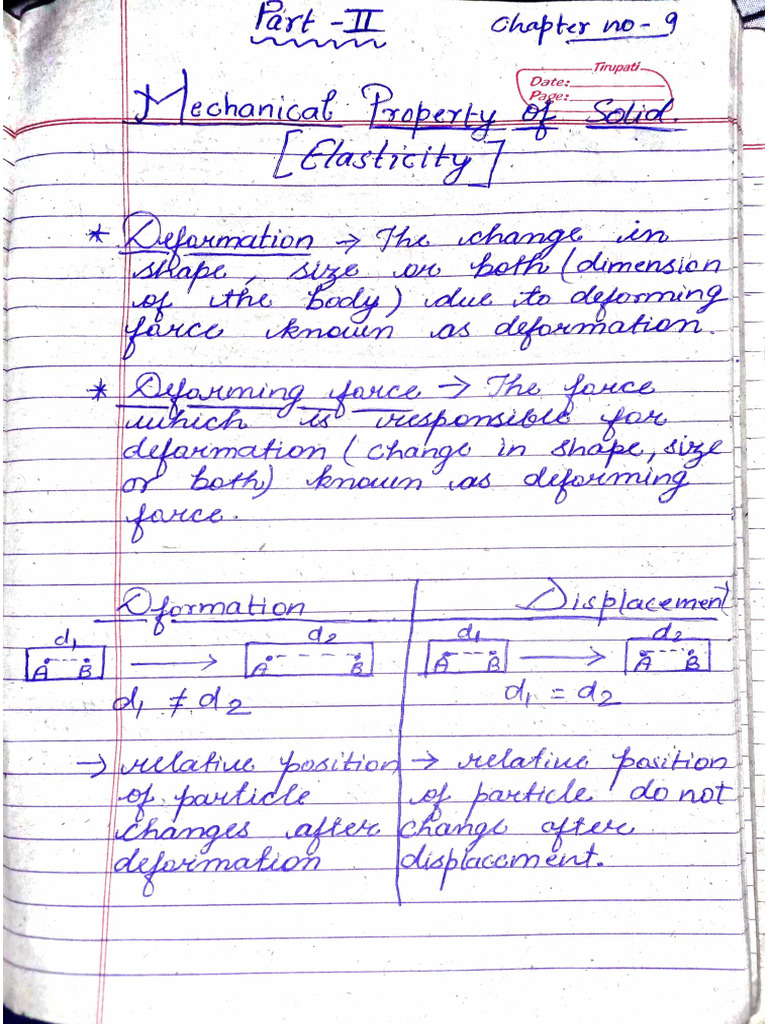 Part - II
Chapter no - 9
Tirupati
Date:
Page:
Mechanical Property of Solid.
[Elasticity]
* Deformation → The change in
shape, size or both (dimension
of the body) due to deforming
force known as deformation.
* Deforming force → The force
which is responsible for
deformation (change in shape, size
or both) known as deforming
force.
Dformation
Displacement
d1 d2 d1 d2
A B A B A B A B
d1 ≠ d2 d1 = d2
→ relative position → relative position
of particle of particle do not
changes after change after
deformation displacement.